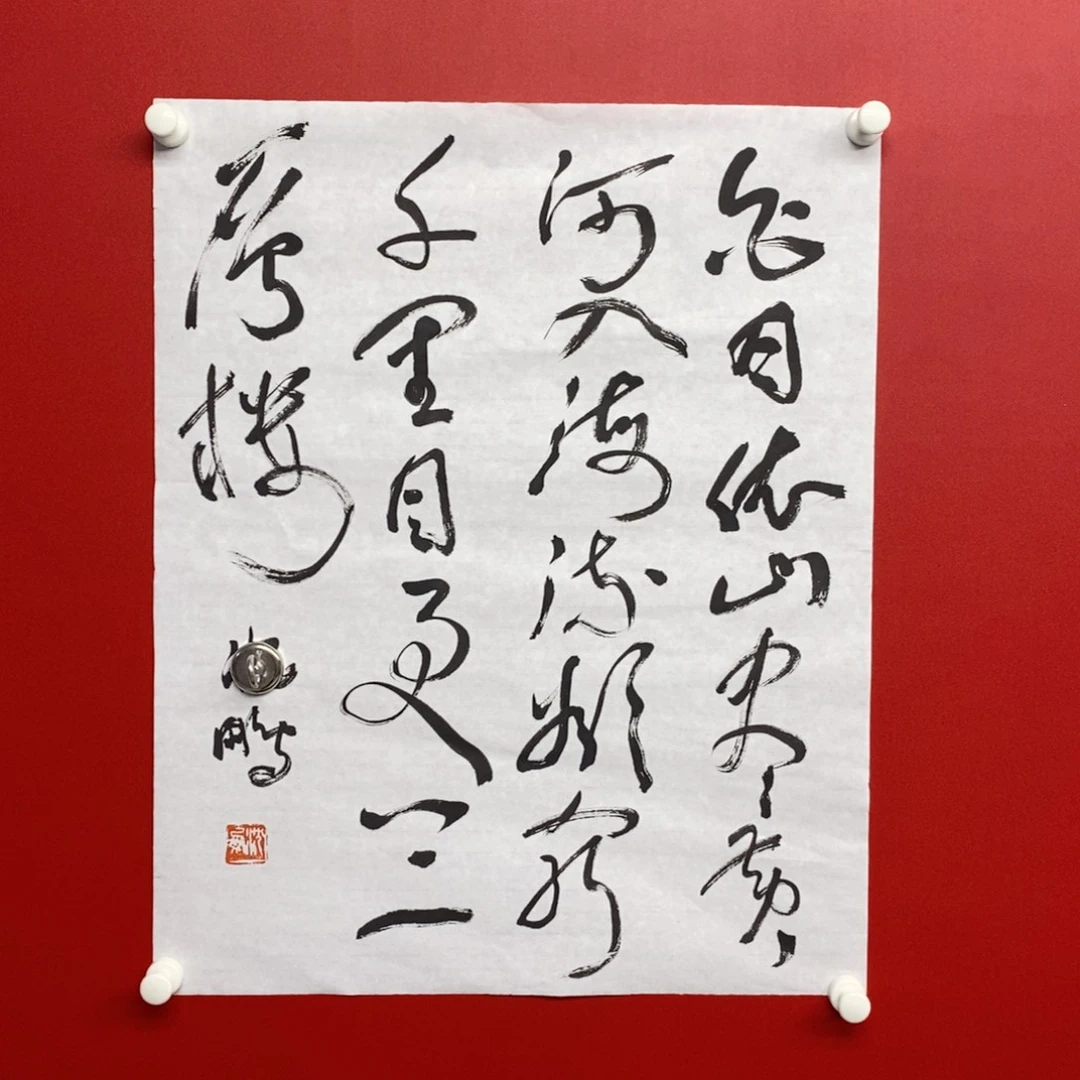 白日依山尽黄
河入海流欲穷
千里目更上一
层楼
鹏